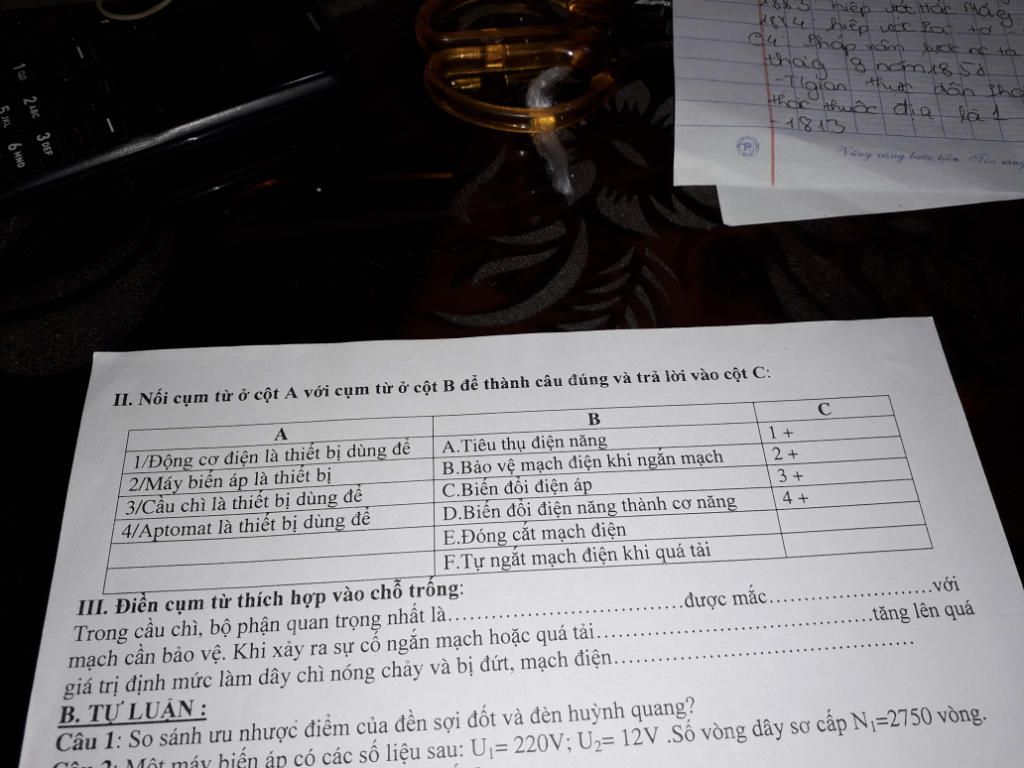 1
2 ABC
3 DEF
5 JKL
6 MNO
1883 hiệp ước Hác Măng
1884 hiệp ước Pa tơ
C4 Pháp xâm lược nc ta
tháng 8 năm 1858
-Tgian thực dân Phá
thác thuộc địa là 1
-1813
II. Nối cụm từ ở cột A với cụm từ ở cột B để thành câu đúng và trả lời vào cột C:
A B C
1/Động cơ điện là thiết bị dùng để A.Tiêu thụ điện năng 1 +
2/Máy biến áp là thiết bị B.Bảo vệ mạch điện khi ngắn mạch 2 +
3/Cầu chì là thiết bị dùng để C.Biến đổi điện áp 3 +
4/Aptomat là thiết bị dùng để D.Biến đổi điện năng thành cơ năng 4 +
E.Đóng cắt mạch điện
F.Tự ngắt mạch điện khi quá tải
III. Điền cụm từ thích hợp vào chỗ trống:
Trong cầu chì, bộ phận quan trọng nhất là……………………………được mắc……………………với
mạch cần bảo vệ. Khi xảy ra sự cố ngắn mạch hoặc quá tải……………………………………tăng lên quá
giá trị định mức làm dây chì nóng chảy và bị đứt, mạch điện………………………………………
B. TỰ LUẬN :
Câu 1: So sánh ưu nhược điểm của đền sợi đốt và đèn huỳnh quang?
Câu 2: Một máy biến áp có các số liệu sau: U₁= 220V; U₂= 12V .Số vòng dây sơ cấp N₁=2750 vòng.